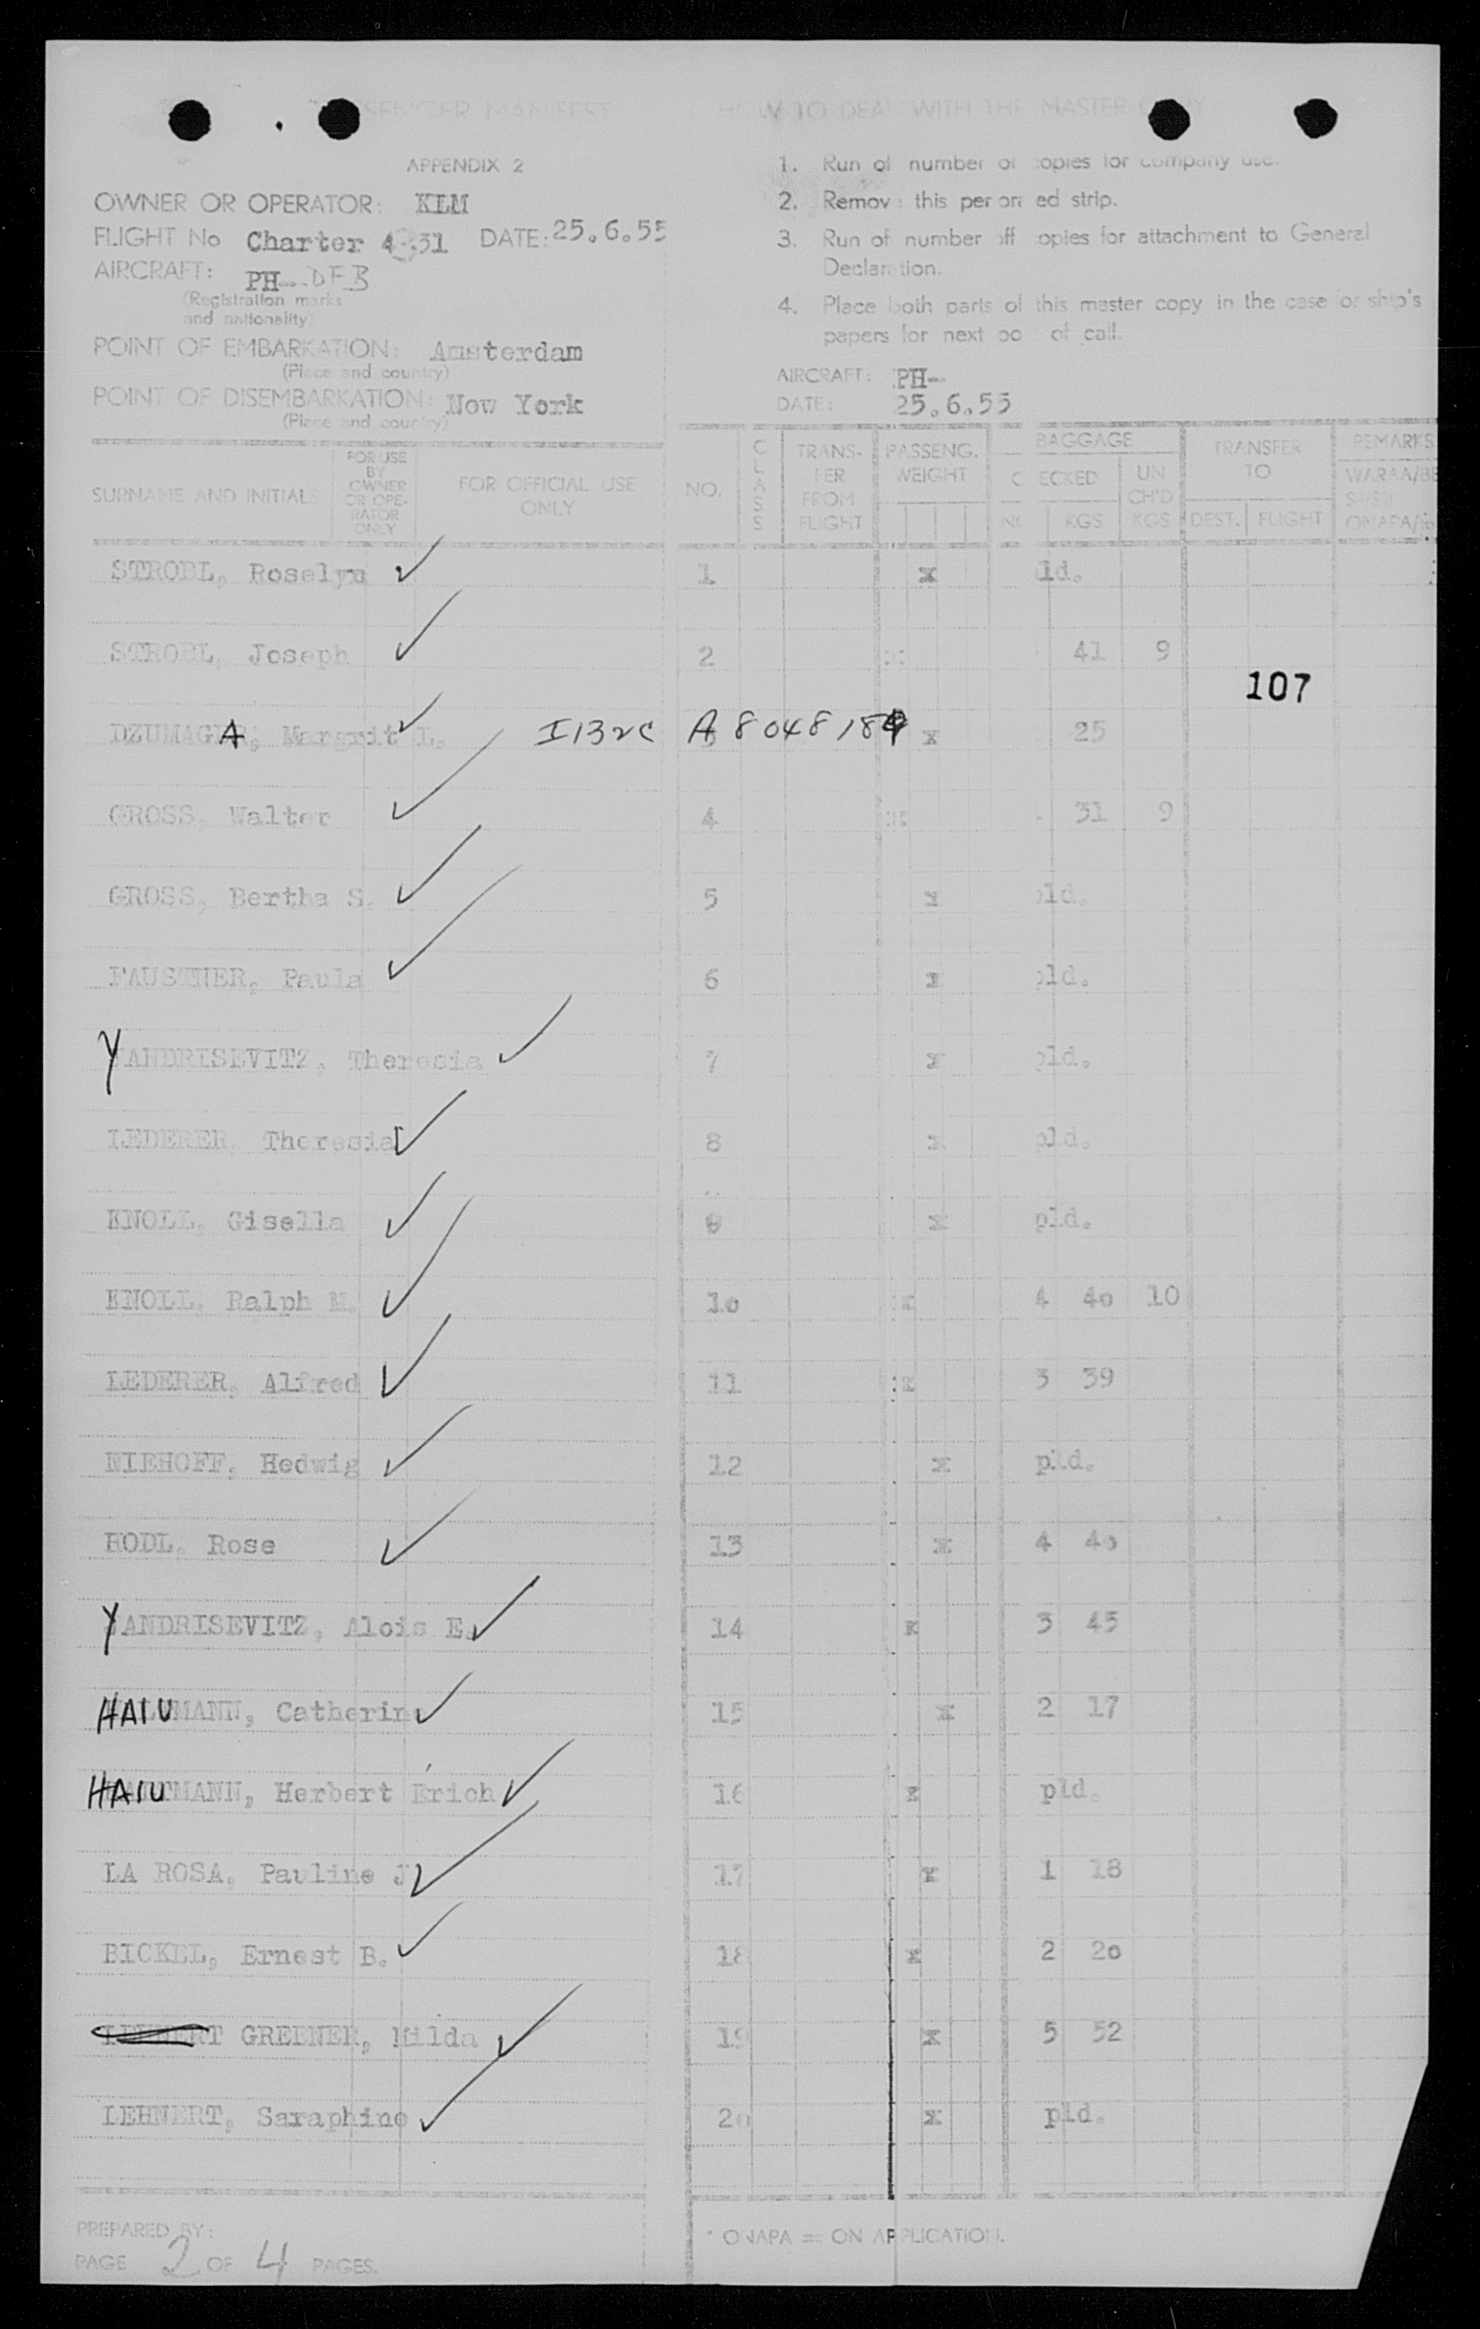 PASSENGER MANIFEST
HOW TO DEAL WITH THE MASTER COPY
APPENDIX 2
OWNER OR OPERATOR: KLM
FLIGHT No Charter 4 31 DATE: 25.6.55
AIRCRAFT: PH-DFB
(Registration marks
and nationality)
POINT OF EMBARKATION: Amsterdam
(Place and country)
POINT OF DISEMBARKATION: New York
(Place and country)
1. Run of number of copies for company use.
2. Remove this perforated strip.
3. Run of number off copies for attachment to General
Declaration.
4. Place both parts of this master copy in the case for ship's
papers for next port of call.
AIRCRAFT: PH-
DATE: 25.6.55
SURNAME AND INITIALS
FOR USE
BY
OWNER
OR OPE-
RATOR
ONLY
FOR OFFICIAL USE
ONLY
NO.
CLASS
TRANS-
FER
FROM
FLIGHT
PASSENG.
WEIGHT
BAGGAGE
CHECKED
NO KGS
UN
CH'D
KGS
TRANSFER
TO
DEST. FLIGHT
REMARKS
STROBL, Roselyn 1 x pld.
STROBL, Joseph 2 x 41 9
107
DZUMAGER A, Margrit L. I132c A8048184 3 x 25
GROSS, Walter 4 x 31 9
GROSS, Bertha S. 5 x pld.
FAUSTNER, Paula 6 x pld.
YANDRISEVITZ, Theresia 7 x pld.
LEDERER, Theresia 8 x pld.
KNOLL, Gisella 9 x pld.
KNOLL, Ralph M. 10 x 4 40 10
LEDERER, Alfred 11 x 3 39
NIEHOFF, Hedwig 12 x pld.
RODL, Rose 13 x 4 40
YANDRISEVITZ, Alois E. 14 x 3 45
HAIUMANN, Catherine 15 x 2 17
HAIUTMANN, Herbert Erich 16 x pld.
LA ROSA, Pauline J 17 x 1 18
BICKEL, Ernest B. 18 x 2 20
GREINER, Hilda 19 x 5 52
LEHNERT, Saraphine 20 x pld.
PREPARED BY:
PAGE 2 OF 4 PAGES.
* ONAPA = ON APPLICATION.